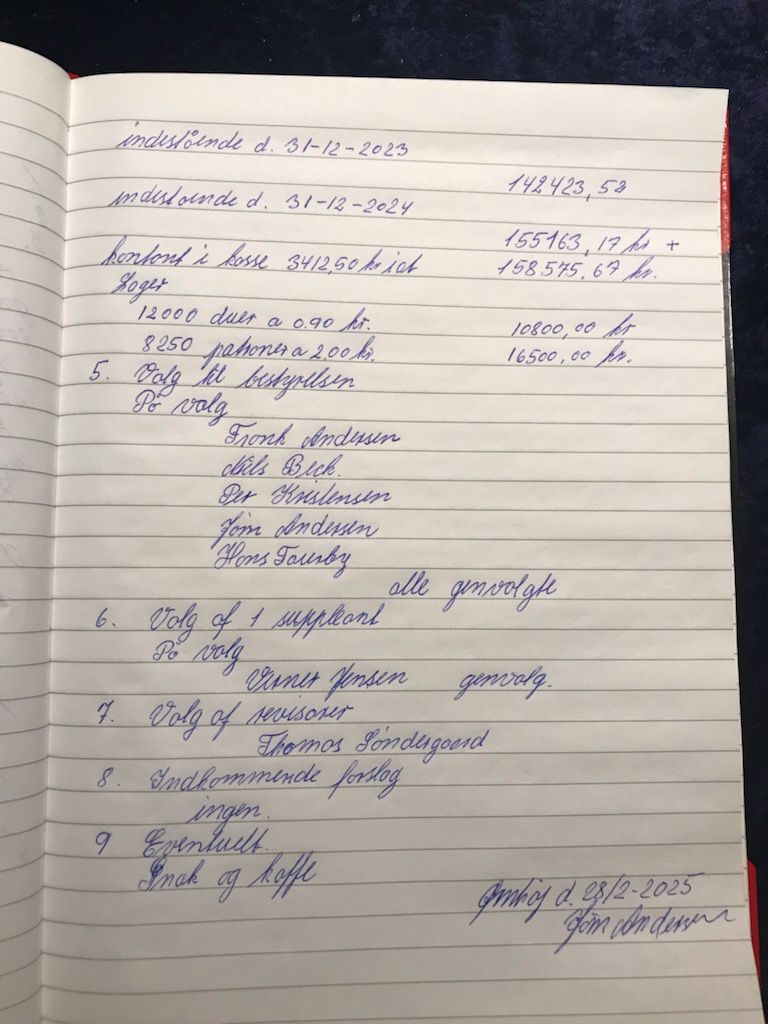 indestående d. 31-12-2023
142423,52
indestående d. 31-12-2024
155163,17 kr +
kontant i kasse 3412,50 kr ialt 158575,67 kr.
Lager
12000 duer a 0.90 kr. 10800,00 kr
8250 patroner a 2,00 kr. 16500,00 kr.
5. Valg til bestyrelsen
På valg
Frank Andersen
Niels Beck.
Per Kristensen
Jørn Andersen
Hans Fauerby
alle genvalgte
6. Valg af 1 suppleant
På valg
Verner Jensen genvalg.
7. Valg af revisorer
Thomas Søndergaard
8. Indkommende forslag
ingen.
9 Eventuelt.
Snak og kaffe
d. 28/2-2025
Jørn Andersen